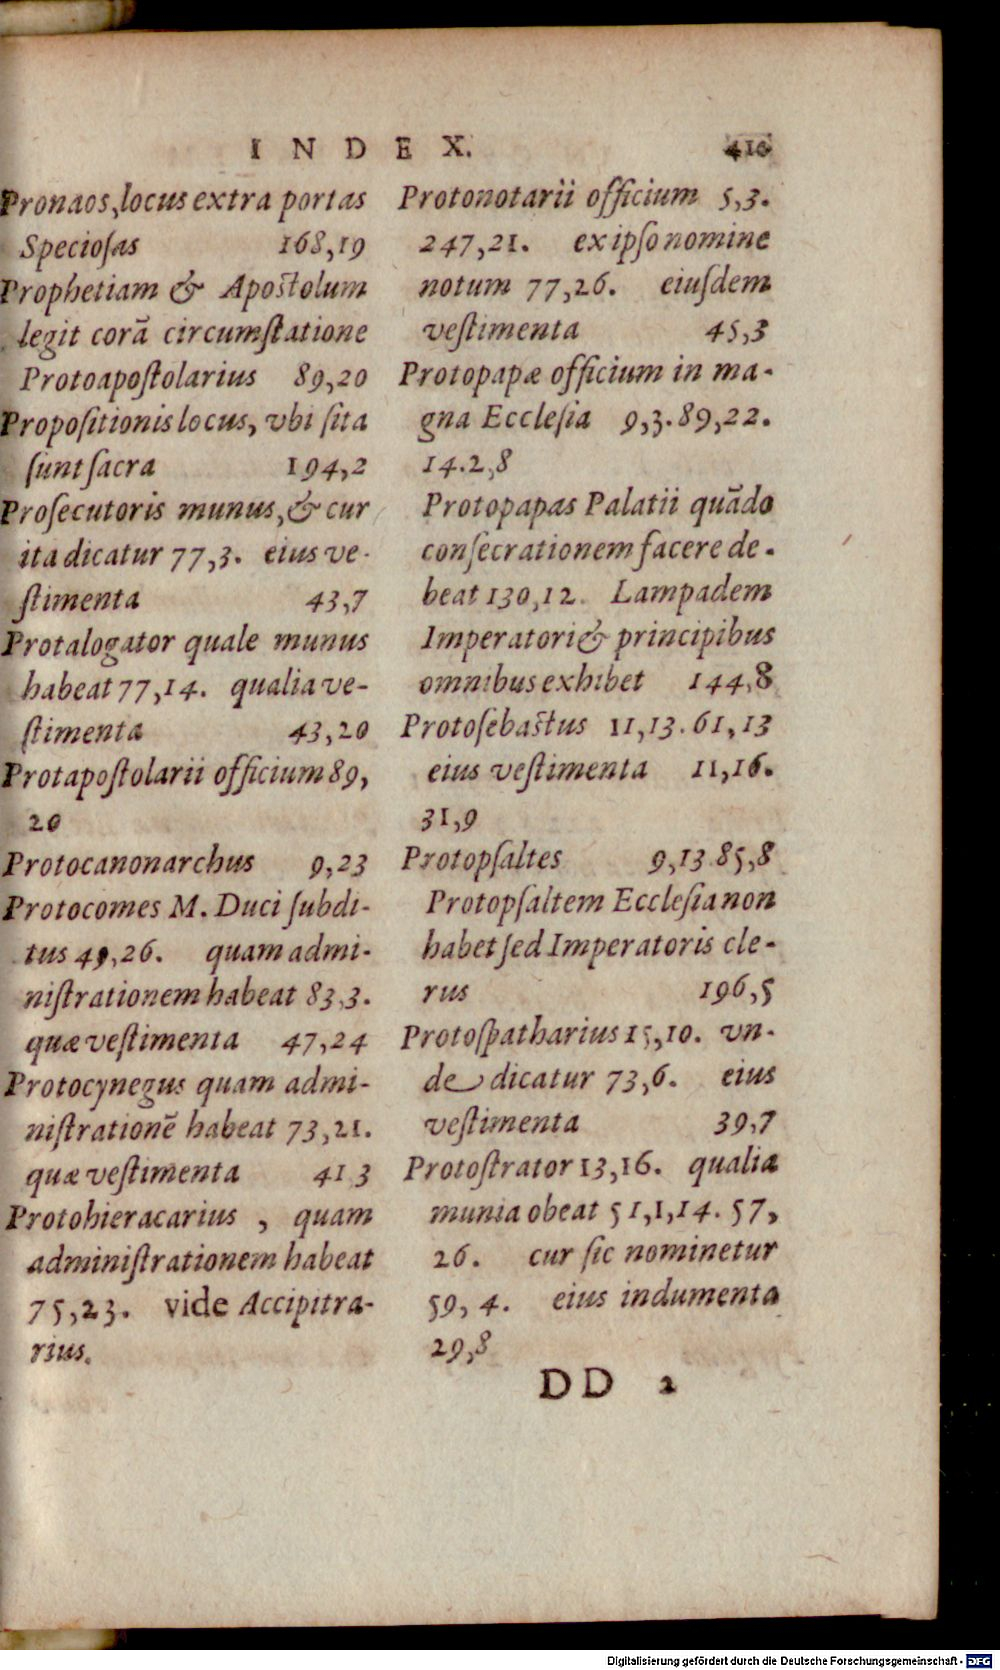 INDEX. 410
Pronaos, locus extra portas
Speciosas 168,19
Prophetiam & Apostolum
legit corã circumstatione
Protoapostolarius 89,20
Propositionis locus, vbi sita
sunt sacra 194,2
Prosecutoris munus, & cur
ita dicatur 77,3. eius ve-
stimenta 43,7
Protalogator quale munus
habeat 77,14. qualia ve-
stimenta 43,20
Protapostolarii officium 89,
20
Protocanonarchus 9,23
Protocomes M. Duci subdi-
tus 49,26. quam admi-
nistrationem habeat 83,3.
quæ vestimenta 47,24
Protocynegus quam admi-
nistrationẽ habeat 73,21.
quæ vestimenta 41 3
Protohieracarius, quam
administrationem habeat
75,23. vide Accipitra-
rius.
Protonotarii officium 5,3.
247,21. ex ipso nomine
notum 77,26. eiusdem
vestimenta 45,3
Protopapæ officium in ma-
gna Ecclesia 9,3.89,22.
14.2,8
Protopapas Palatii quãdo
consecrationem facere de-
beat 130,12. Lampadem
Imperatori & principibus
omnibus exhibet 144,8
Protosebastus 11,13.61,13
eius vestimenta 11,16.
31,9
Protopsaltes 9,13 85,8
Protopsaltem Ecclesia non
habet sed Imperatoris cle-
rus 196,5
Protospatharius 15,10. vn-
de dicatur 73,6. eius
vestimenta 39,7
Protostrator 13,16. qualia
munia obeat 51,1,14. 57,
26. cur sic nominetur
59, 4. eius indumenta
29,8
DD 2
Digitalisierung gefördert durch die Deutsche Forschungsgemeinschaft - DFG